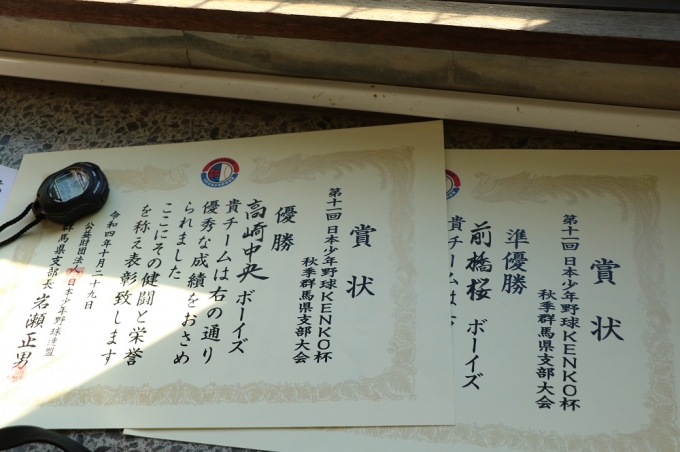 賞状
第十一回日本少年野球KENKO杯
秋季群馬県支部大会
準優勝
前橋桜 ボーイズ
貴チームは
賞状
第十一回日本少年野球KENKO杯
秋季群馬県支部大会
優勝
高崎中央 ボーイズ
貴チームは右の通り
優秀な成績をおさめ
られました
ここにその健闘と栄誉
を称え表彰致します
令和四年十月二十九日
公益財団法人日本少年野球連盟
群馬県支部長 岩瀬正男